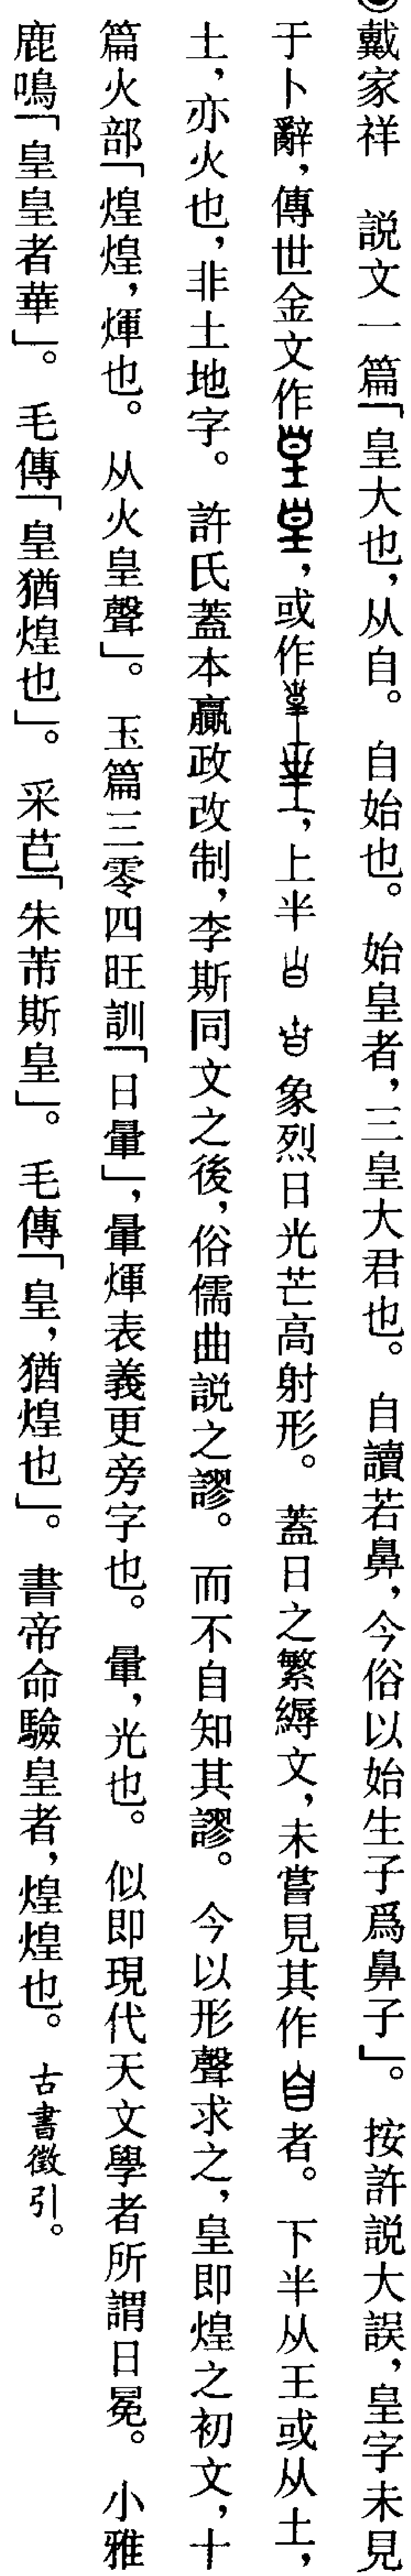 ●戴家祥　説文一篇「皇大也，从自。自始也。始皇者，三皇大君也。自讀若鼻，今俗以始生子爲鼻子」。按許説大誤，皇字未見
于卜辭，傳世金文作，或作，上半象烈日光芒高射形。蓋日之繁縟文，未嘗見其作者。下半从王或从土，
土，亦火也，非土地字。許氏蓋本贏政改制，李斯同文之後，俗儒曲説之謬。而不自知其謬。今以形聲求之，皇即煌之初文，十
篇火部「煌煌，煇也。从火皇聲」。玉篇三零四旺訓「日暈」，暈煇表義更旁字也。暈，光也。似即現代天文學者所謂日冕。小雅
鹿鳴「皇皇者華」。毛傳「皇猶煌也」。采芑「朱芾斯皇」。毛傳「皇，猶煌也」。書帝命驗皇者，煌煌也。古書徵引。